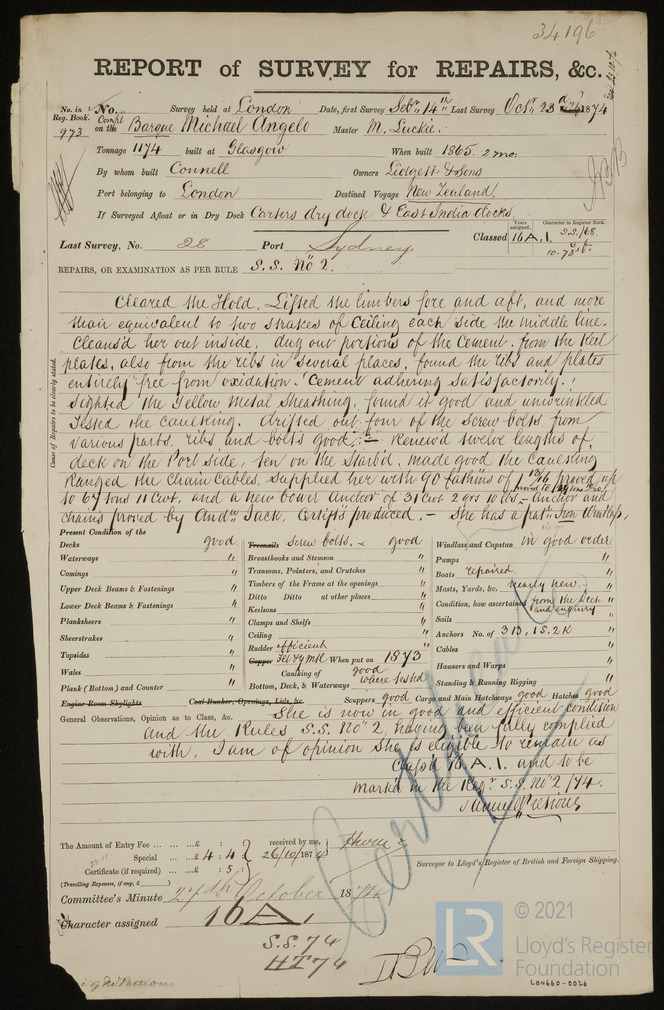 34196
REPORT of SURVEY for REPAIRS, &c.
No. in Reg. Book. 973
No. Survey held at London Date, first Survey Sepr 14th Last Survey Octr 23rd 1874
on the Compt Barque Michael Angelo Master M. Luckie.
Tonnage 1174 built at Glasgow When built 1865. 2 mo.
By whom built Connell Owners Lidgett & Sons
Port belonging to London Destined Voyage New Zealand
If Surveyed Afloat or in Dry Dock Carters dry dock & East India docks
Years assigned. Character in Register Book.
Last Survey, No. 28 Port Sydney Classed 16 A.1. S.S./68.
10.73
REPAIRS, OR EXAMINATION AS PER RULE S.S. No 2.
Cause of Repairs to be clearly stated.
Cleared the Hold. Lifted the limbers fore and aft, and more
than equivalent to two strakes of Ceiling each side the middle line.
Cleans'd her out inside, dug out portions of the Cement from the Keel
plates, also from the ribs in several places, found the ribs and plates
entirely free from oxidation. Cement adhering satisfactorily.
Sighted the Yellow Metal Sheathing, found it good and unwrinkled
Tested the caulking. drifted out four of the screw bolts from
various parts, ribs and bolts good. Renew'd twelve lengths of
deck on the Port side, ten on the Starb'd, made good the caulking
Ranged the chain cables. Supplied her with 90 fathoms of 1 13/16 proved up
to 67 tons 11 Cwt, and a new bower Anchor of 31 Cwt 2 qrs 10 lbs – Anchor and
chains proved by Andw Jack, Certifts produced. – She has a patn Iron Windlass,
Present Condition of the
Decks good
Waterways "
Comings "
Upper Deck Beams & Fastenings "
Lower Deck Beams & Fastenings "
Planksheers "
Sheerstrakes "
Topsides "
Wales "
Plank (Bottom) and Counter "
Engine Room Skylights
Treenails Screw bolts. good
Breasthooks and Stemson "
Transoms, Pointers, and Crutches "
Timbers of the Frame at the openings "
Ditto Ditto at other places "
Keelsons "
Clamps and Shelfs "
Ceiling "
Rudder efficient
Copper Yel Y Mtl When put on 1873
Caulking of good
Bottom, Deck, & Waterways where tested
Coal Bunker, Openings, Lids, &c.
Windlass and Capstan in good order
Pumps "
Boats repaired "
Masts, Yards, &c. nearly new
Condition, how ascertained from the Deck and enquiry
Sails "
Anchors No. of 3B, 1S. 2K
Cables "
Hawsers and Warps "
Standing & Running Rigging "
Scuppers good Cargo and Main Hatchways good Hatches good
General Observations, Opinion as to Class, &c. She is now in good and efficient condition
and the Rules S.S. No 2, having been fully complied
with, I am of opinion she is eligible to remain as
Class'd 16 A.1. and to be
mark'd in the Regr S.S. No 2/74.
Certificate
The Amount of Entry Fee £ : :
Special £ 4 : 4 :
Certificate (if required) £ : 5 :
(Travelling Expenses, if any, £ )
received by me,
26/10/1874
Surveyor to Lloyd's Register of British and Foreign Shipping.
Committee's Minute 27th October 1874
Character assigned 16 A 1
S.S. 74
HT 74
© 2021
LR
Lloyd's Register
Foundation
LON660-0026